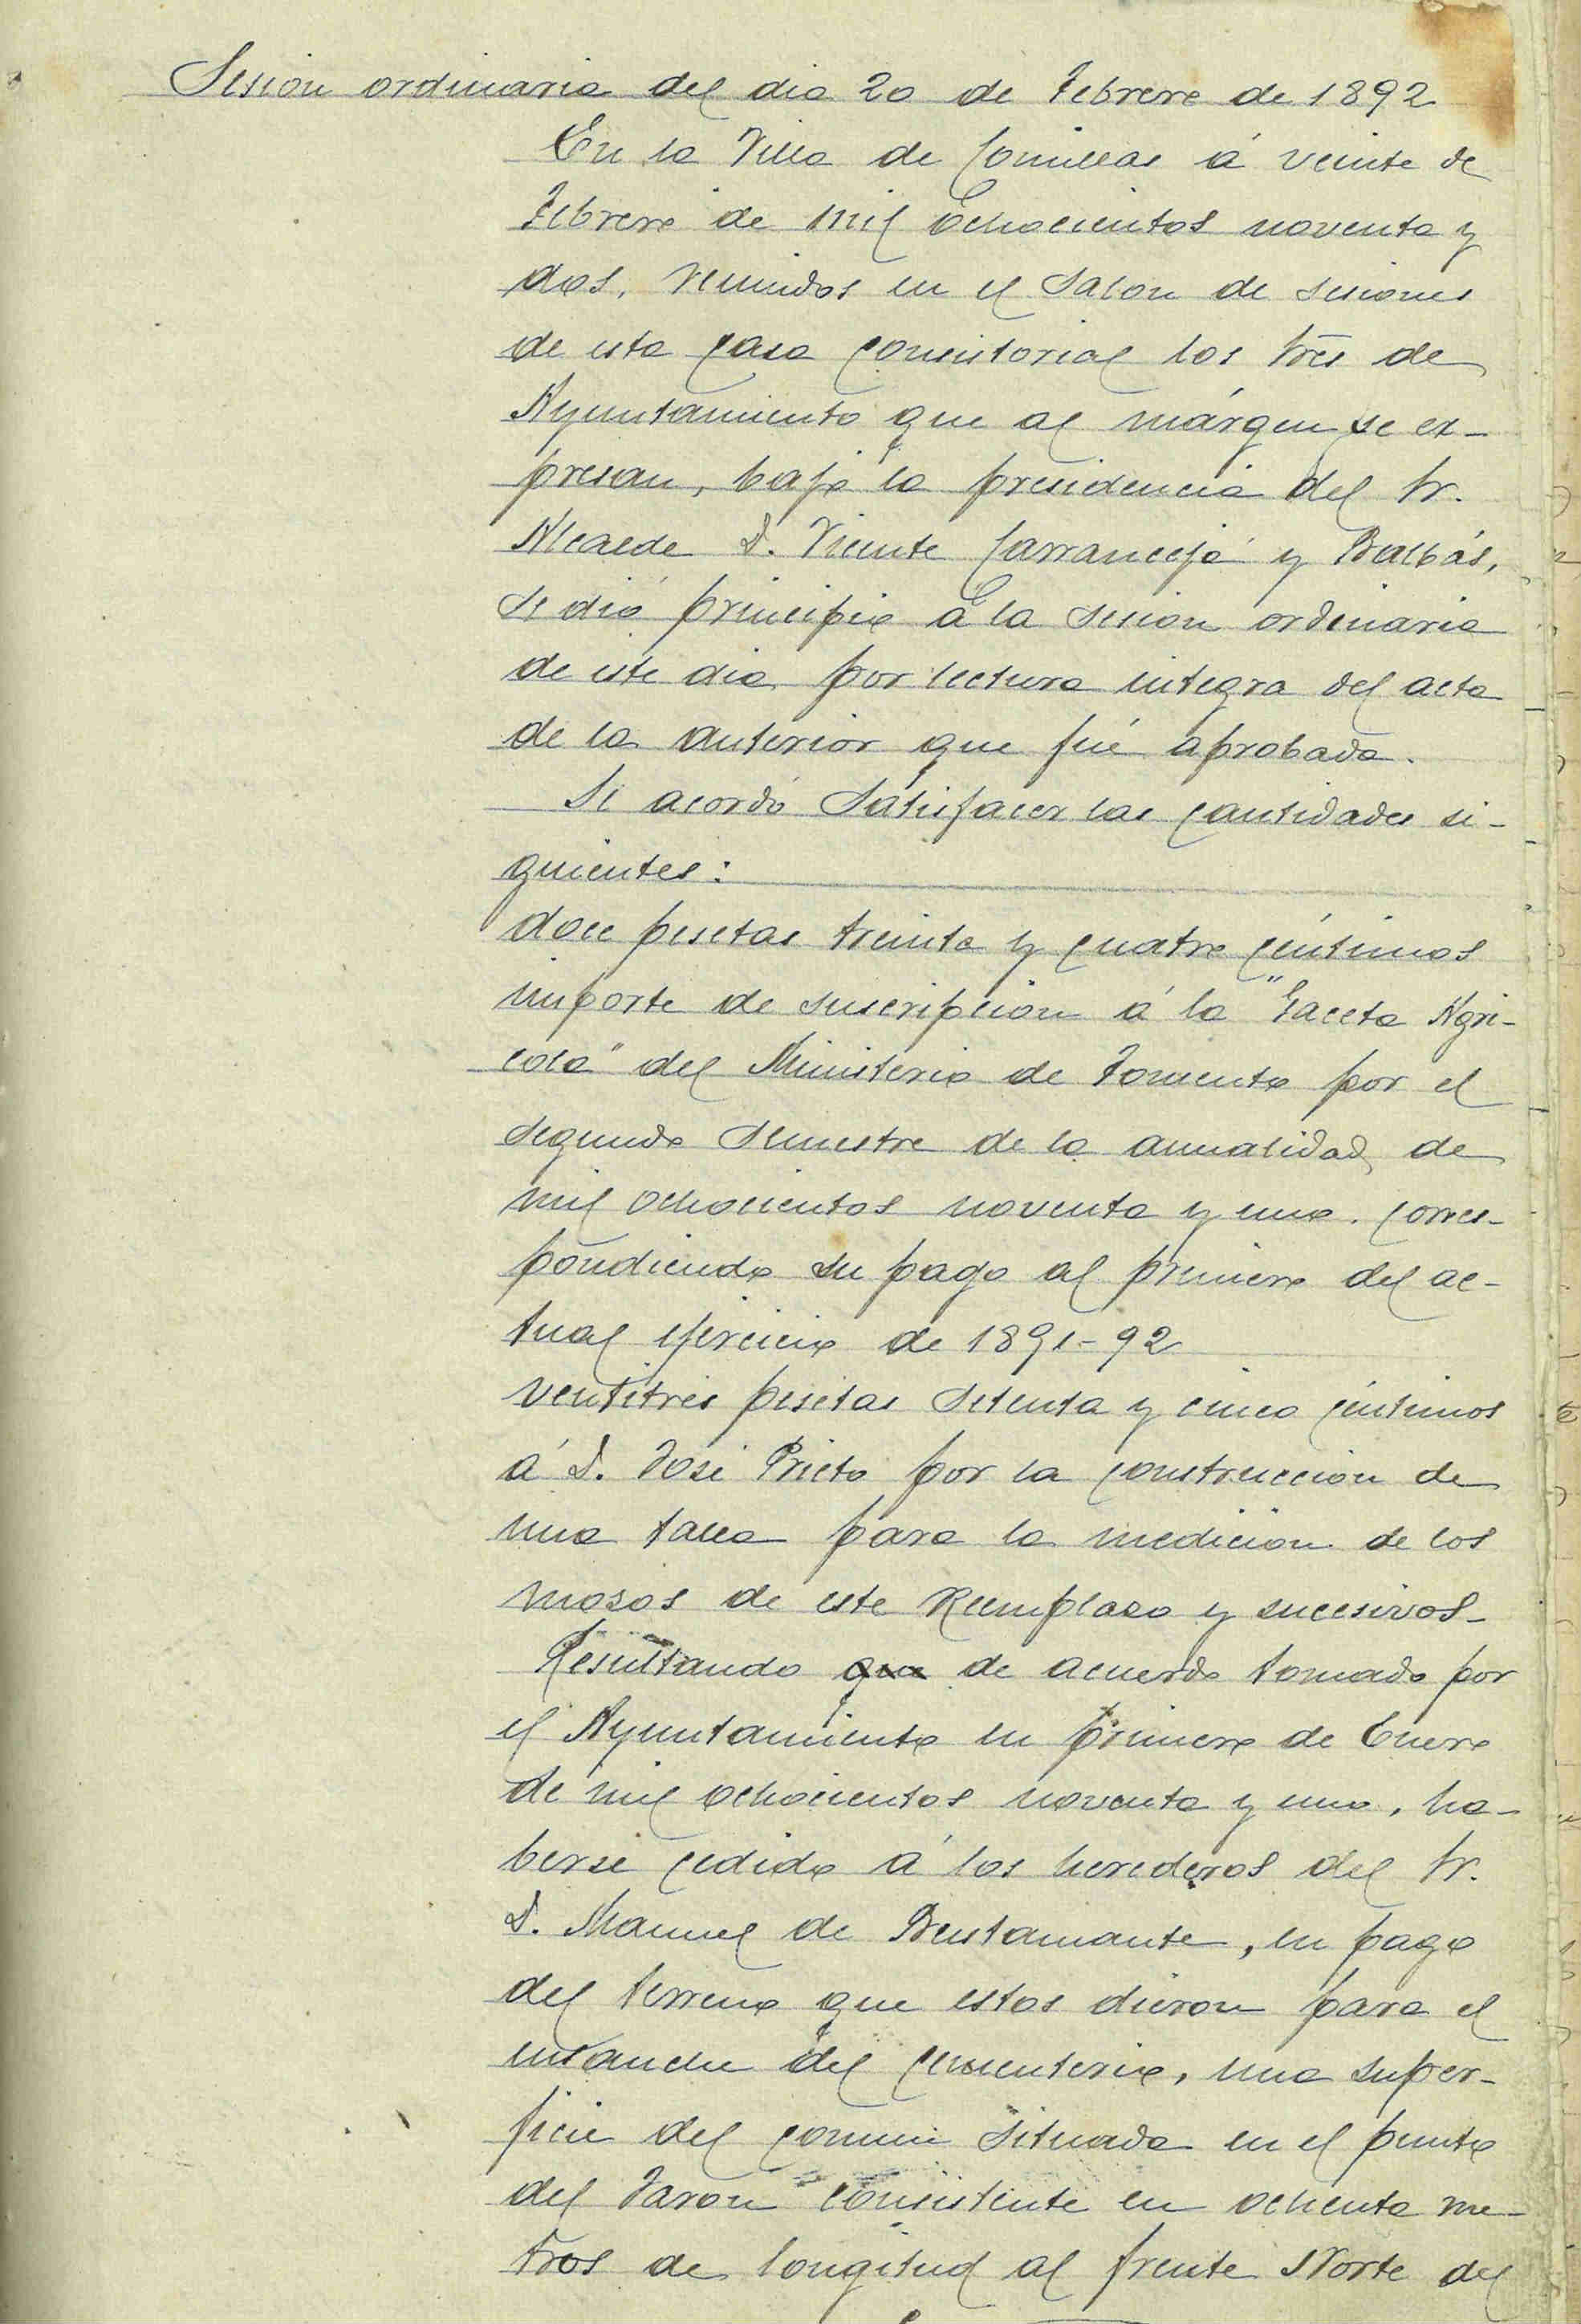 Sesion ordinaria del dia 20 de Febrero de 1892
En la Villa de Comillas á veinte de
Febrero de mil ochocientos noventa y
dos, reunidos en el Salon de sesiones
de esta Casa Consistorial los Sres de
Ayuntamiento que al márgen se ex-
presan, bajo la presidencia del Sr.
Alcalde D. Vicente Carranceja y Balbás,
se dió principio á la sesion ordinaria
de este dia por lectura integra del acta
de la anterior que fué aprobada.
Se acordó Satisfacer las cantidades si-
guientes:
doce pesetas treinta y cuatro céntimos
importe de suscripcion á la "Gaceta Agri-
cola" del Ministerio de Fomento por el
segundo Semestre de la anualidad de
mil ochocientos noventa y uno. corres-
pondiendo su pago al primero del ac-
tual ejercicio de 1891-92
ventitres pesetas Setenta y cinco céntimos
á D. José Prieto por la construccion de
una talla para la medicion de los
mosos de este Reemplazo y sucesivos-
Resultando que de acuerdo tomado por
el Ayuntamiento en primero de Enero
de mil ochocientos noventa y uno, ha-
berse cedido á los herederos del Sr.
D. Manuel de Bustamante, en pago
del terreno que estos dieron para el
ensanche del cementerio, una super-
ficie del comun Situada en el punto
del Jaron consistente en ochenta me-
tros de longitud al frente Norte del